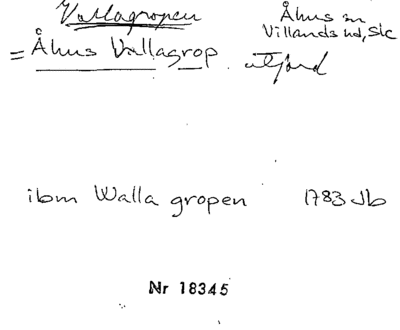 Vallagropen
Åhus sn
Villands hd, Sk
= Åhus Vallagrop utjord
ibm Walla gropen 1783 Jb
Nr 18345